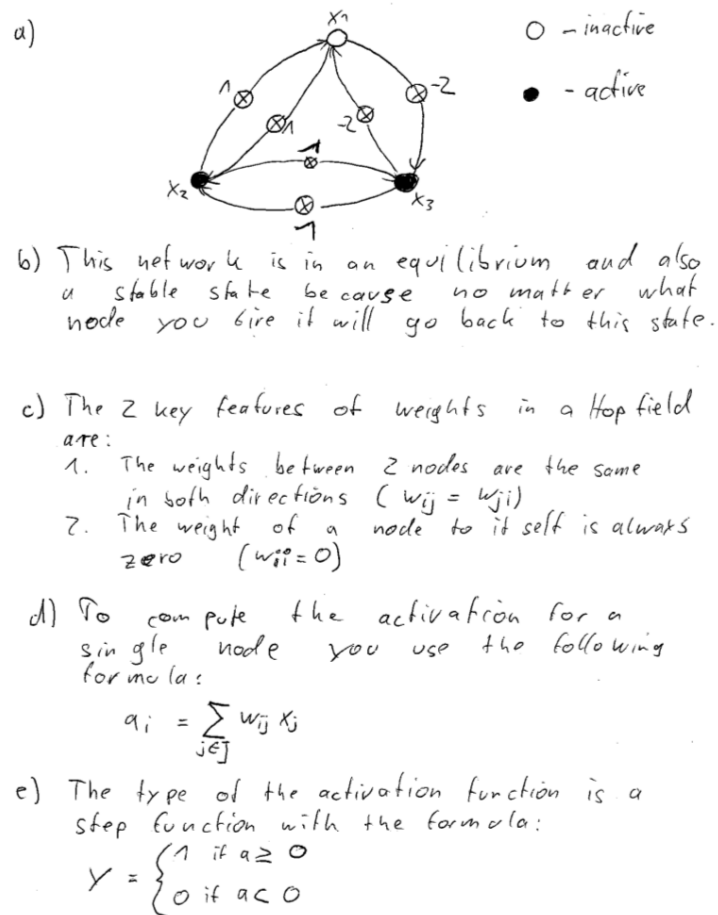 a)
x1
○ - inactive
● - active
1
-2
1
-2
1
x2
x3
1
b) This network is in an equilibrium and also
a stable state because no matter what
node you fire it will go back to this state.
c) The 2 key features of weights in a Hopfield
are:
1. The weights between 2 nodes are the same
in both directions (wij = wji)
2. The weight of a node to it self is always
zero (wii = 0)
d) To compute the activation for a
single node you use the following
formula:
ai = ∑ wij xj
j∈J
e) The type of the activation function is a
step function with the formula:
Y = { 1 if a ≥ 0
0 if a < 0